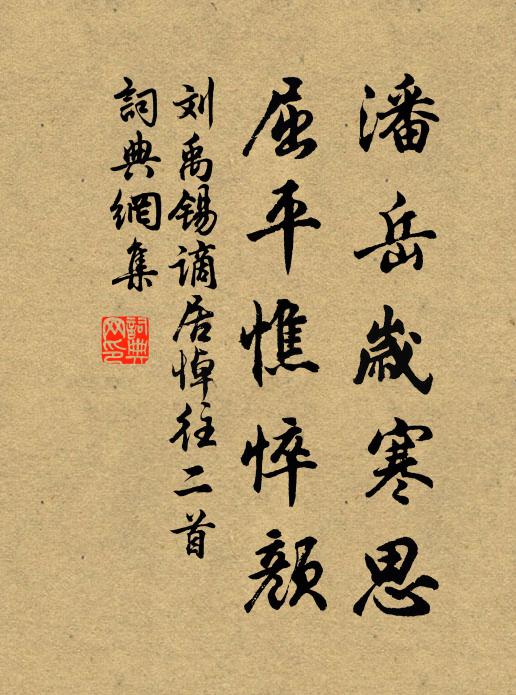 潘岳歲寒思
屈平憔悴顏
刘禹锡谪居悼往二首
詞典網集
詞典网印